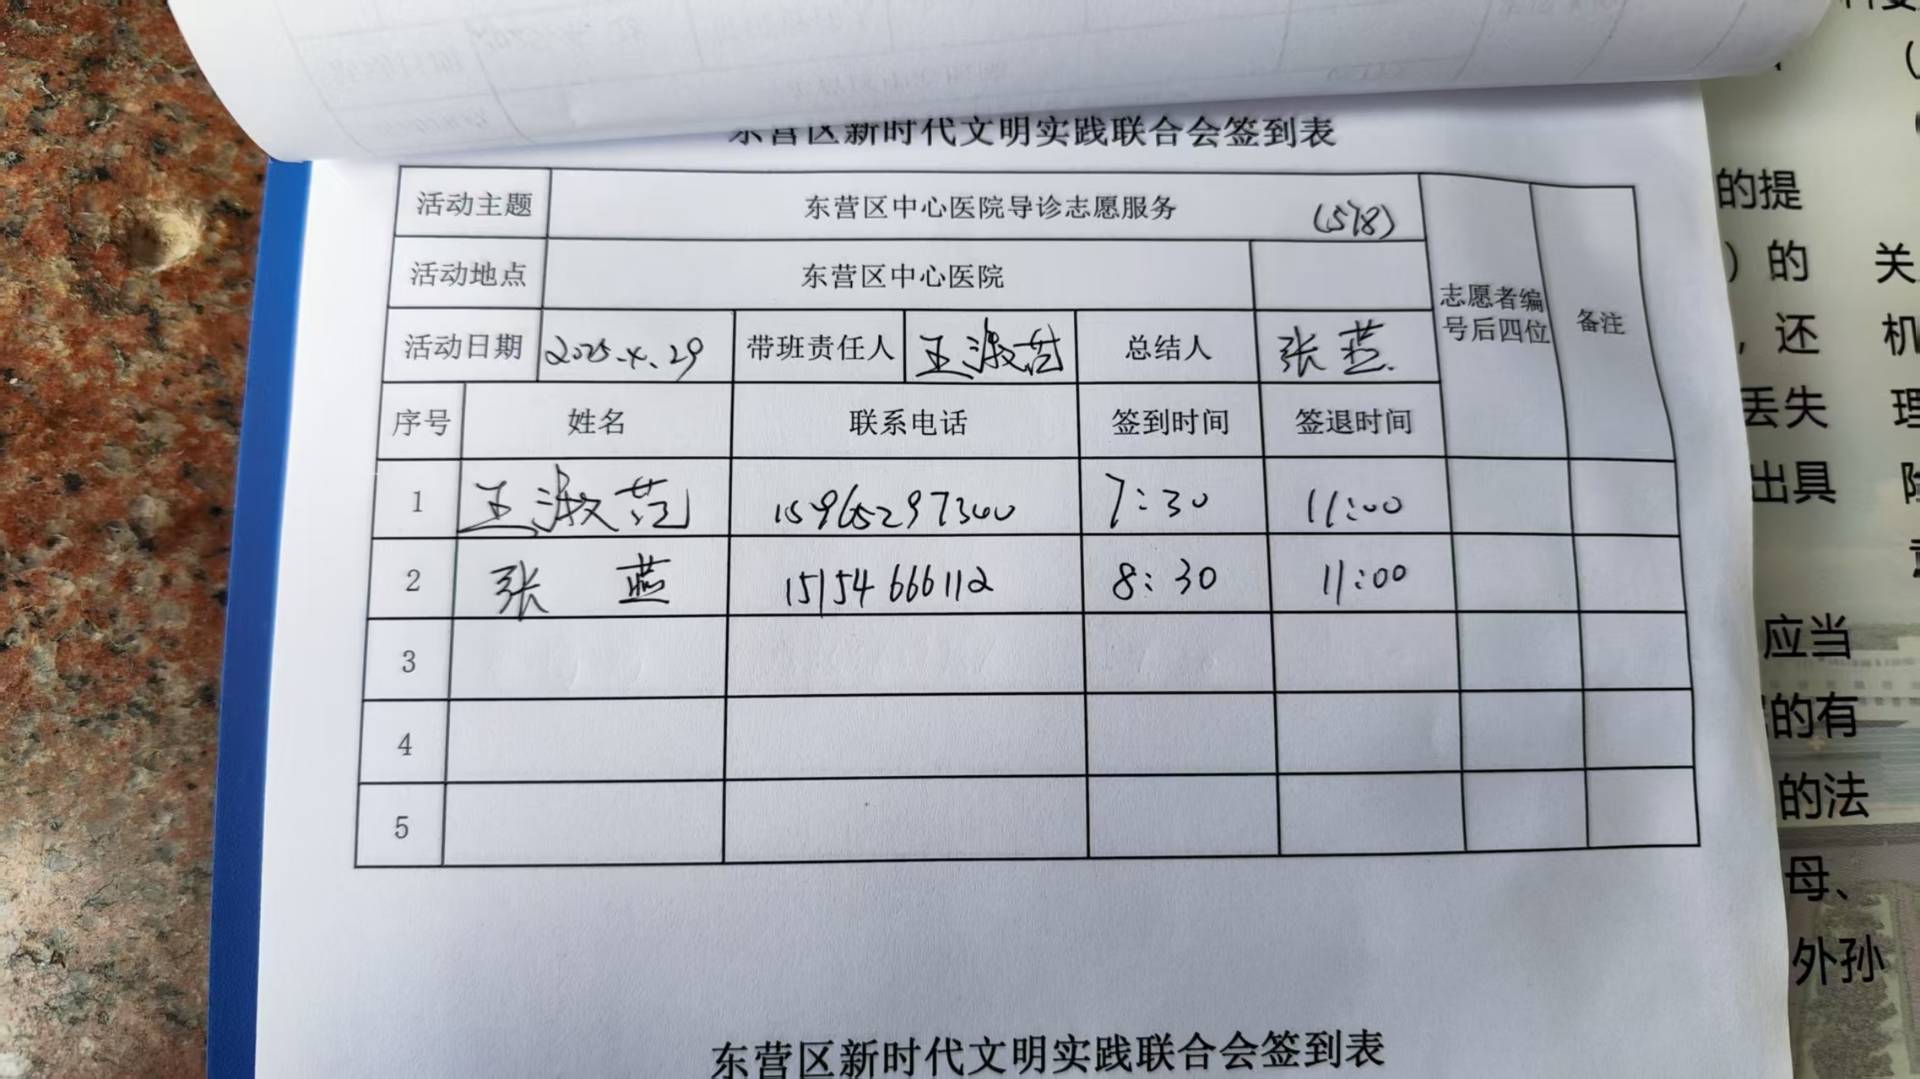 东营区新时代文明实践联合会签到表
活动主题 东营区中心医院导诊志愿服务 (578)
活动地点 东营区中心医院
志愿者编号后四位 备注
活动日期 2025.4.29 带班责任人 王淑范 总结人 张蓝
序号 姓名 联系电话 签到时间 签退时间
1 王淑范 15965297300 7:30 11:00
2 张蓝 15154666112 8:30 11:00
3
4
5
东营区新时代文明实践联合会签到表
的提
)的
关
,还
机
丢失
理
出具
应当
的有
的法
母、
外孙